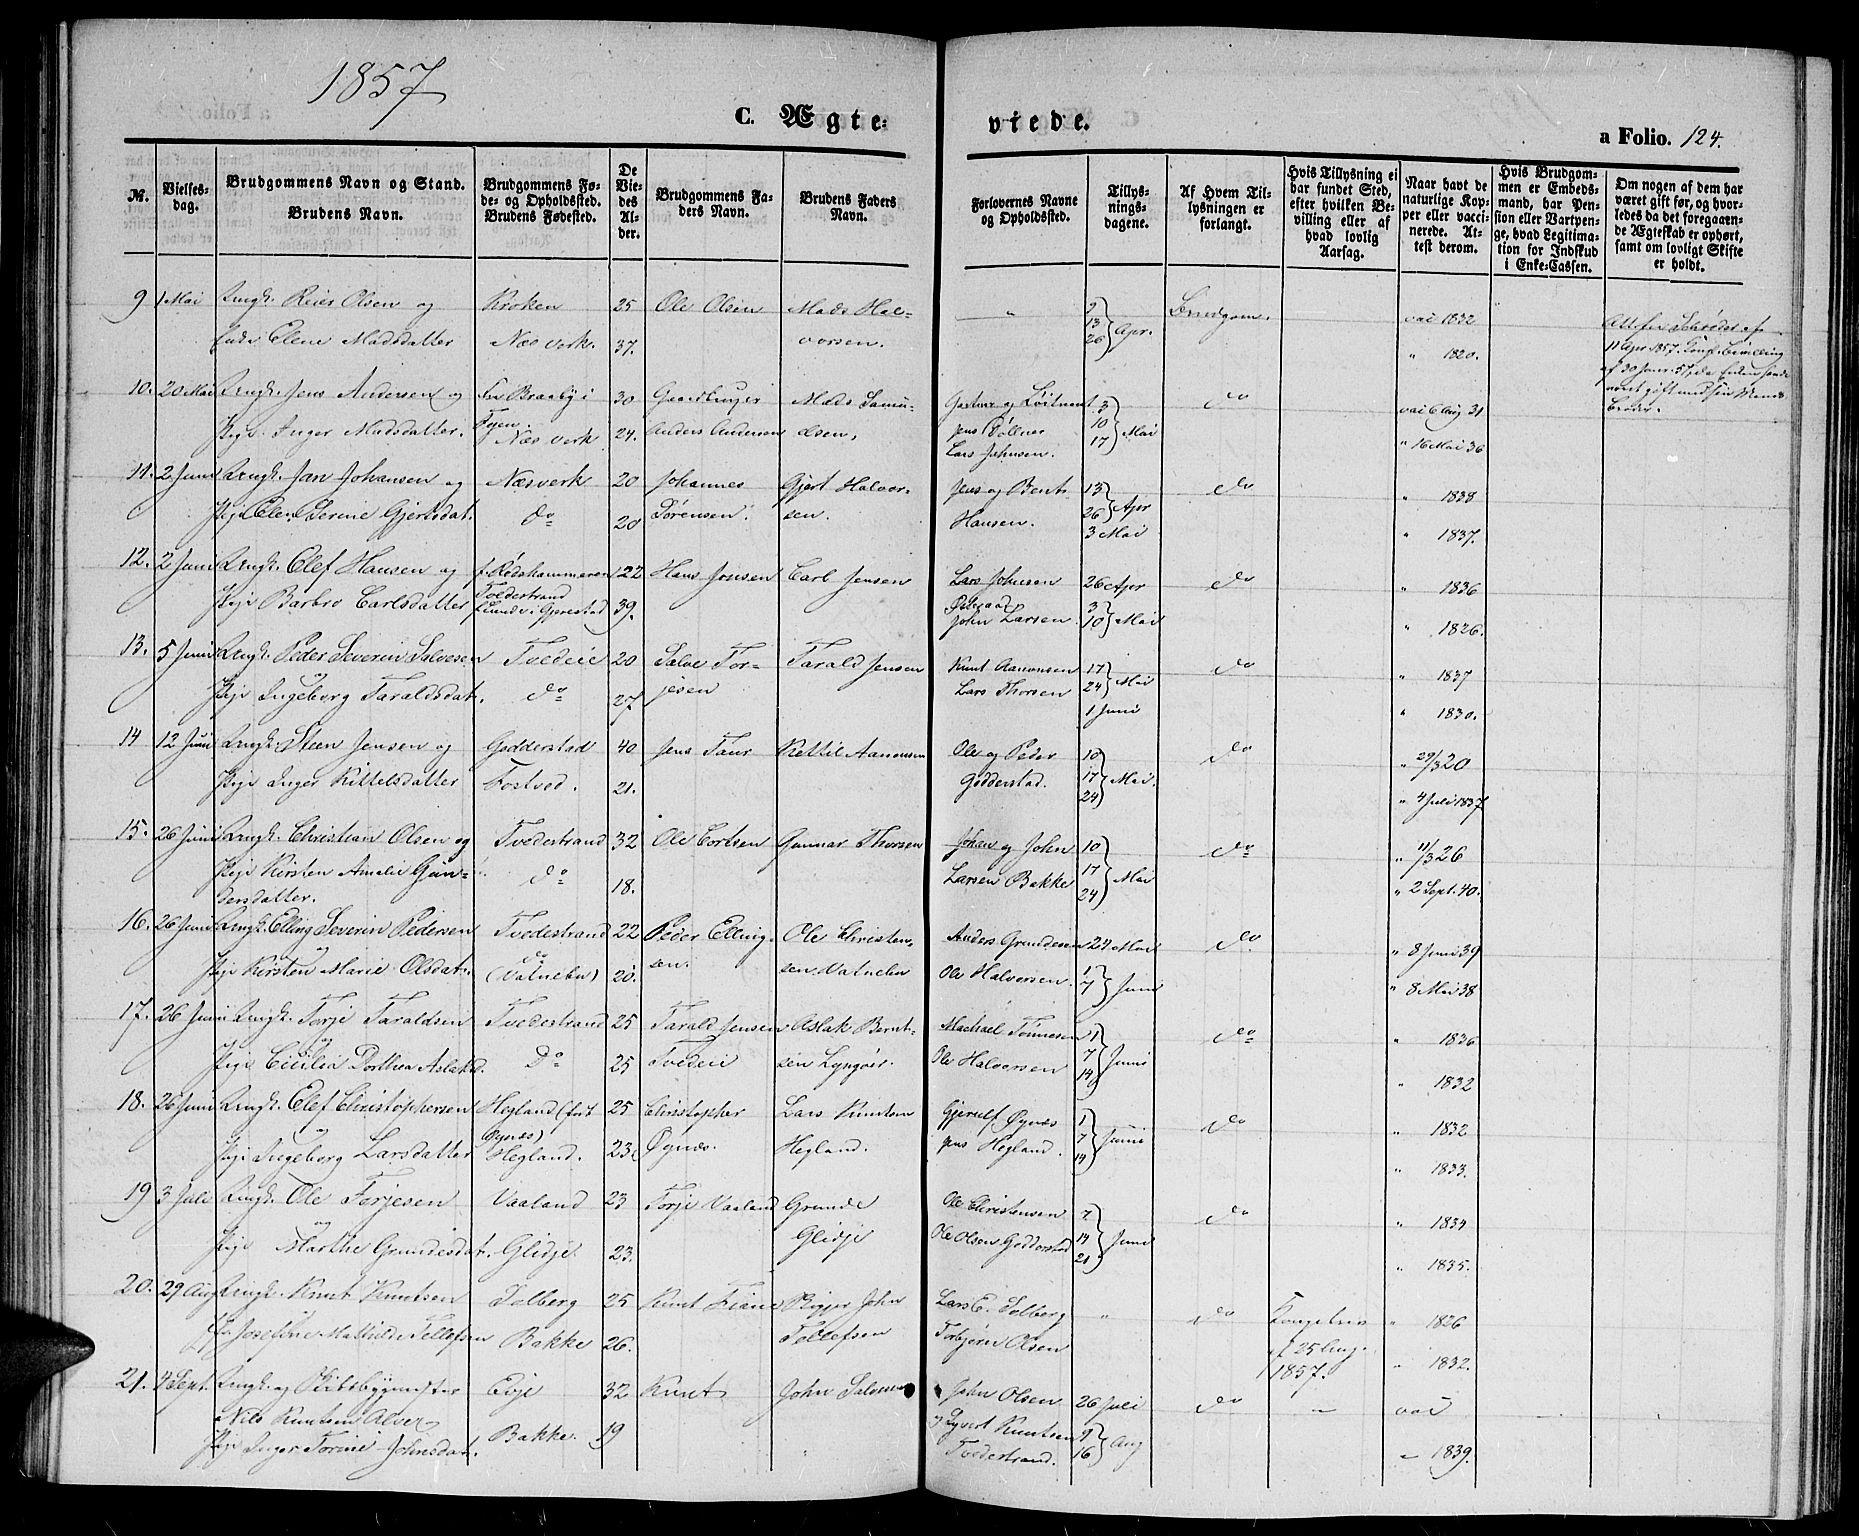 1857
C. Ægte-
viede.
a Folio. 124.
№.
Vielses-
dag.
Brudgommens Navn og Stand.
Brudens Navn.
Brudgommens Fø-
de- og Opholdssted.
Brudens Fødested.
De
Vie-
des
Al-
der.
Brudgommens Fa-
ders Navn.
Brudens Faders
Navn.
Forlovernes Navne
og Opholdssted.
Tillys-
nings-
dagene.
Af Hvem Til-
lysningen er
forlangt.
Hvis Tillysning ei
har fundet Sted,
efter hvilken Be-
villing eller af
hvad lovlig
Aarsag.
Naar havt de
naturlige Kop-
per eller vacci-
nerede. At-
test derom.
Hvis Brudgom-
men er Embeds-
mand, har Pen-
sion eller Vartpen-
ge, hvad Legitima-
tion for Indskud
i Enke-Cassen.
Om nogen af dem har
været gift før, og hvor-
ledes da det foregaaen-
de Ægteskab er ophørt,
samt om lovligt Skifte
er holdt.
9 1 Mai Ungk. Reier Olsen og Kroken 25 Ole Olsen Mads Hal- " 9 13 26 Apr. Brudgom. vac 1832
Enke Elene Madsdatter Næs verk. 37. vorsen. " 1820.
11 Apr 1857. Kongl. Bevilling
10. 20 Mai Ungk. Jens Andersen og Braaby i 30 Gaardbruger Mads Samu- Løitnant 3 10 17 Mai do vac 6 Aug 31
Pige Inger Madsdatter. Næs verk 24. Anders Andersen elsen, Jens Døllner " 16 Mai 36
Lars Johnsen.
11. 2 Juni Ungk. Jan Johansen og Næsverk 20 Johannes Gjert Halvor- Jens og Bent 13 26 Apr do " 1838
Pige Elen Serine Gjertsdat. do 20 Sørensen. sen. Hansen. 3 Mai " 1837.
12. 2 Juni Ungk. Elef Hansen og 22 Hans Jonsen Carl Jensen Lars Johnsen 26 Apr do " 1836
Tvedestrand
Pige Barbro Carlsdatter Lunde i Gjerestad 39. John Larsen 3 10 Mai " 1826.
13. 5 Juni Ungk. Peder Severin Salvesen Tvedeie 20 Salve Tor- Tarald Jensen Knut Aanonsen 17 24 Mai do " 1837
og
Pige Ingeborg Taraldsdat. do 27 jesen Lars Thorsen 1 Juni " 1830.
14 12 Juni Ungk. Steen Jensen og Godderstad 40 Jens Taur Kettil Aanonsen Ole og Peder 10 17 24 Mai. do " 29/3 20
Pige Inger Kittelsdatter Fostved. 21. Godderstad. " 4 Juli 1837
15. 26 Juni Ungk. Christian Olsen og Tvedestrand 32 Ole Gunnar Thorsen Johan og John 10 17 24 Mai do " 11/3 26
Pige Kirsten Amalie Gun- do 18. Larsen Bakke " 2 Sept. 40.
dersdatter.
16. 26 Juni Ungk. Elling Severin Pedersen Tvedestrand 22 Peder Elling- Ole Christen- Anders Grundesen 24 Mai do " 8 Juni 39
og do
Pige Kirsten Marie Olsdat. (Vatnebu) 20. sen. sen Vatnebu Ole Halvorsen. 1 7 Juni " 8 Mai 38
17. 26 Juni Ungk. Torje Taraldsen Tvedestrand 25 Tarald Jensen Aslak Bernt- Michael Tønnesen 1 7 14 Juni do " 1836
og
Pige Cicilia Dorthea Aslaksd. Do 25 Tvedeie sen Lyngøer. Ole Halvorsen " 1832
18. 26 Juni Ungk. Elef Christophersen Hegland (født 25 Christopher Lars Knutsen Gjerulf Øynæs 1 7 14 Juni do " 1832
og Øynæs)
Pige Ingeborg Larsdatter Hegland. 23 Øynæs. Hegland. Jens Hegland. " 1833.
19 3 Juli Ungk. Ole Torjesen Vaaland 23 Torje Vaaland Grunde Ole Christensen 7 14 21 Juni do " 1834
og
Pige Marthe Grundesdat. Glidje. 23. Glidje Ole Olsen Godderstad " 1835.
20. 29 Aug Ungk. Knut Knutsen Solberg 25 Knut Fiane John Lars E. Solberg " do Kongebrev " 1826
Josefine Mathilde Tellefsen Bakke 26. Tellefsen Torbjørn Olsen af 25 Aug. 1857. " 1832.
21. 4 Sept. Ungk. og Skibsbygmester Evje 32 Knut John John Olsen 26 Juli do " vac
Nils Knutsen Alver Syvert Knutsen 9 16 Aug
Pige Inger Torine Johnsdat. Bakke. 19 Tvedestrand. " 1839.